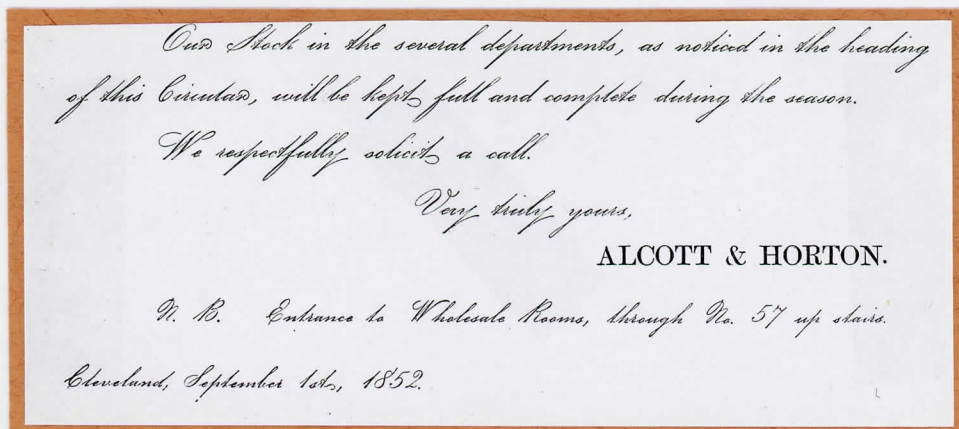 Our Stock in the several departments, as noticed in the heading
of this Circular, will be kept full and complete during the season.
We respectfully solicit a call.
Very truly yours,
ALCOTT & HORTON.
N. B. Entrance to Wholesale Rooms, through No. 57 up stairs.
Cleveland, September 1st, 1852.